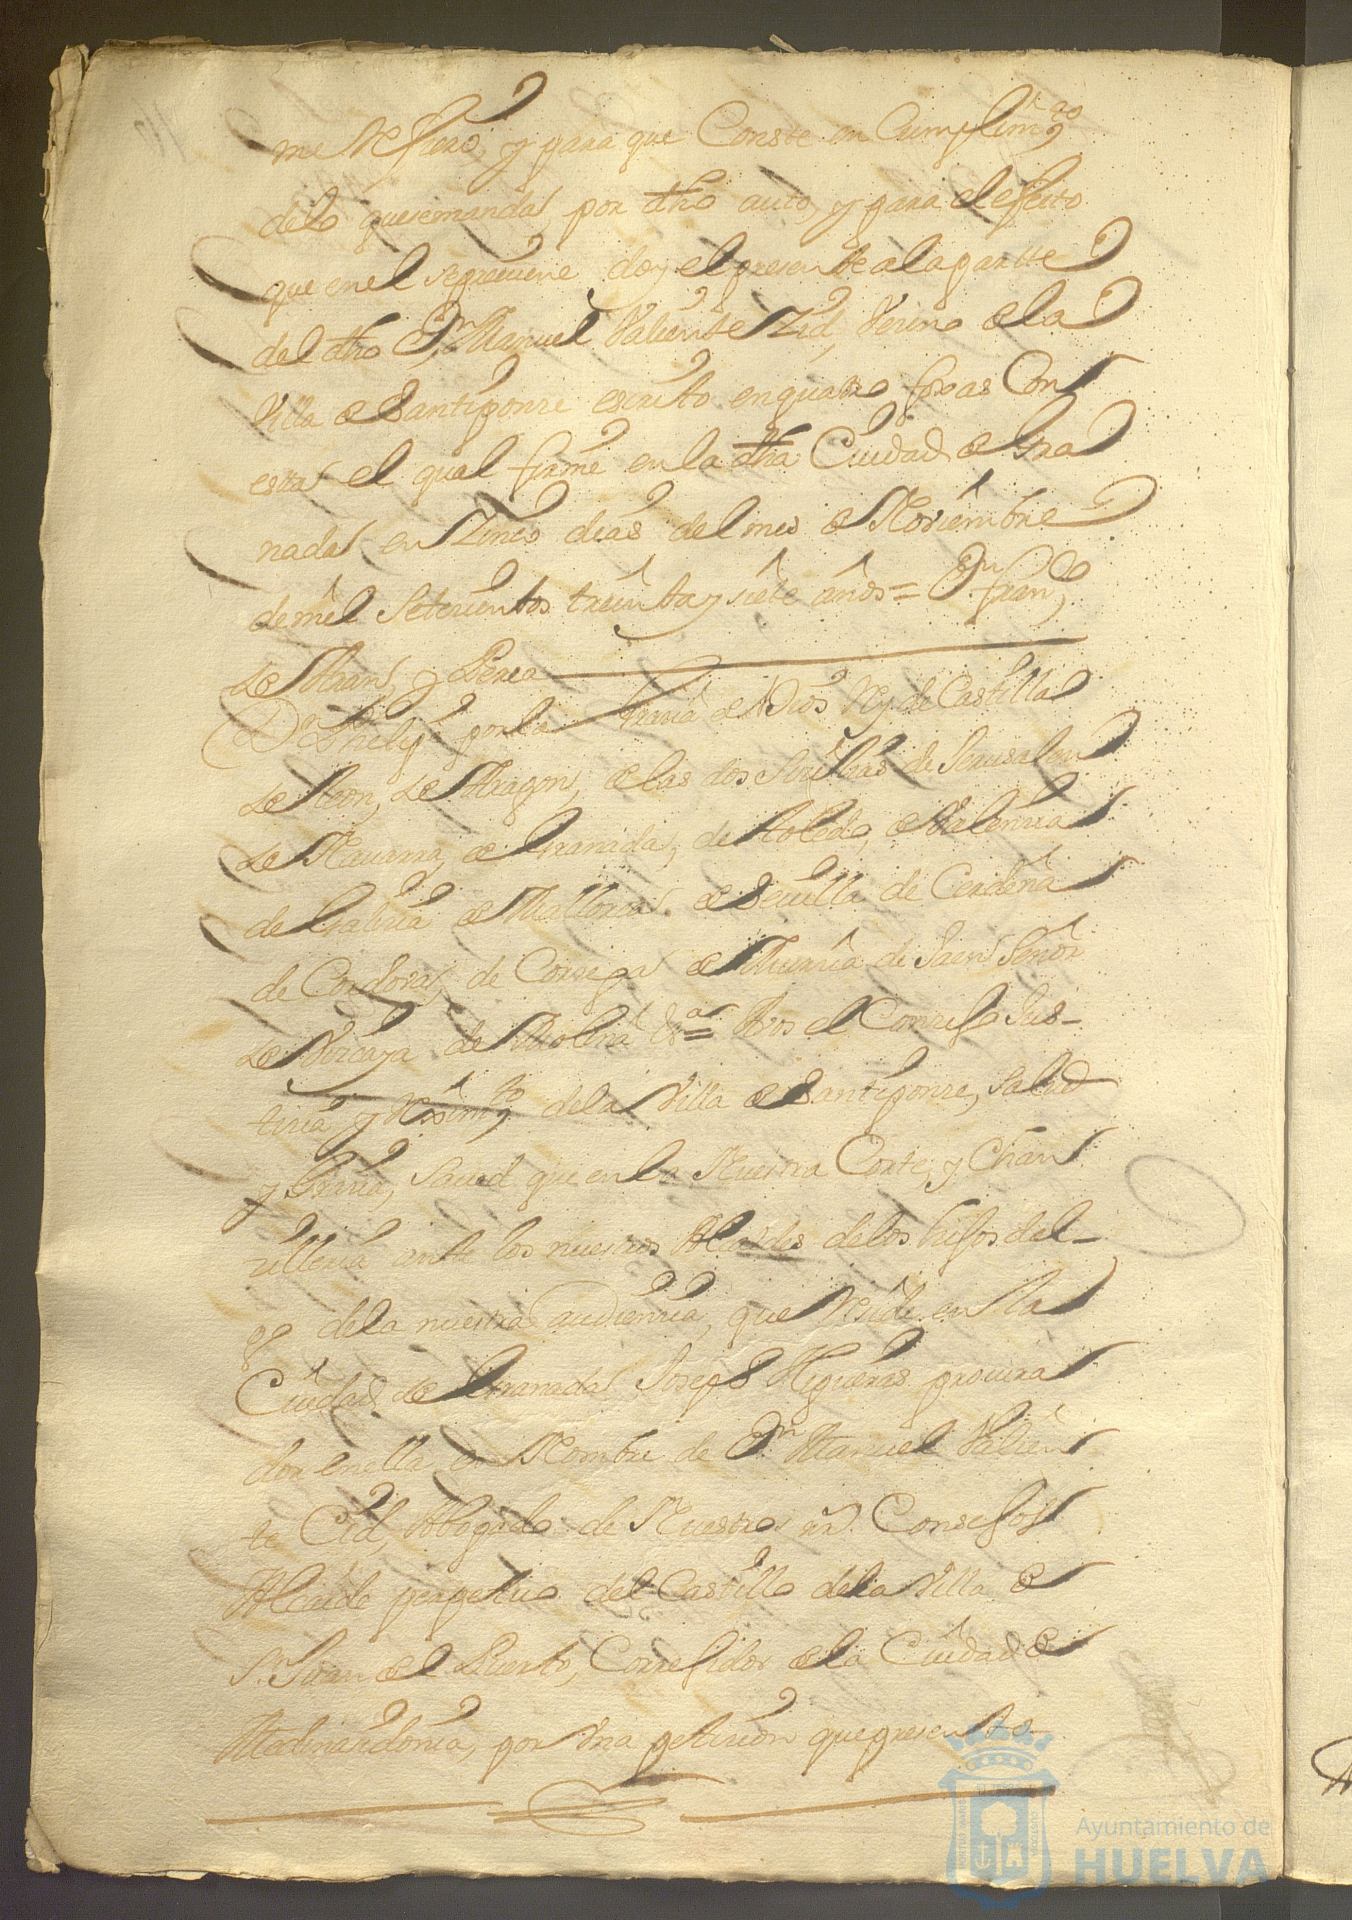 me Refiero, y para que Conste en Cumplim.to
delo quesemanda por dho auto, y para el efecto
que enel sepreuiene doy el presente ala partte
del dho Dn Manuel Valiente Zid, Vezino de la
Villa de Santiponze escrito enquatro foxas Con
esta el qual firmé en la dha Ciudad de Gra
nada en Zinco dias del mes de Noviembre
demil Setezientos treinta y siete años = Dn Fran.co
de Y Perea
Dn Phelipe por la Grazia de Dios Rey de Castilla
de Leon, de Aragon, de las dos Sicilias de Jerusalen
de Nauarra, de Granada, de Toledo, de Valenzia
de Galizia de Mallorca de Seuilla de Cerdeña
de Cordova, de Corsega de Murzia de Jaen Señor
de Vizcaya de Molina &a = Avos el Conzejo Jus-
tizia y Reximto dela Villa de Santiponze, Salud
y Grazia, Saued que en la Nuestra Corte, y Chan
zilleria ante los nuestros Alcaldes delos hijos dal-
go dela nuestra audienzia, que Reside en la
Ciudad de Granada Joseph Higueras procura
dor enella en Nombre de Dn Manuel Valien
te Cid, Abogado de Nuestros Rs. Consejos
Alcaide perpetuo del Castillo dela Villa de
Sn Juan del Puerto, Correjidor de la Ciudad de
Medinazidonia, por Una petizion quepresento
Ayuntamiento de
HUELVA